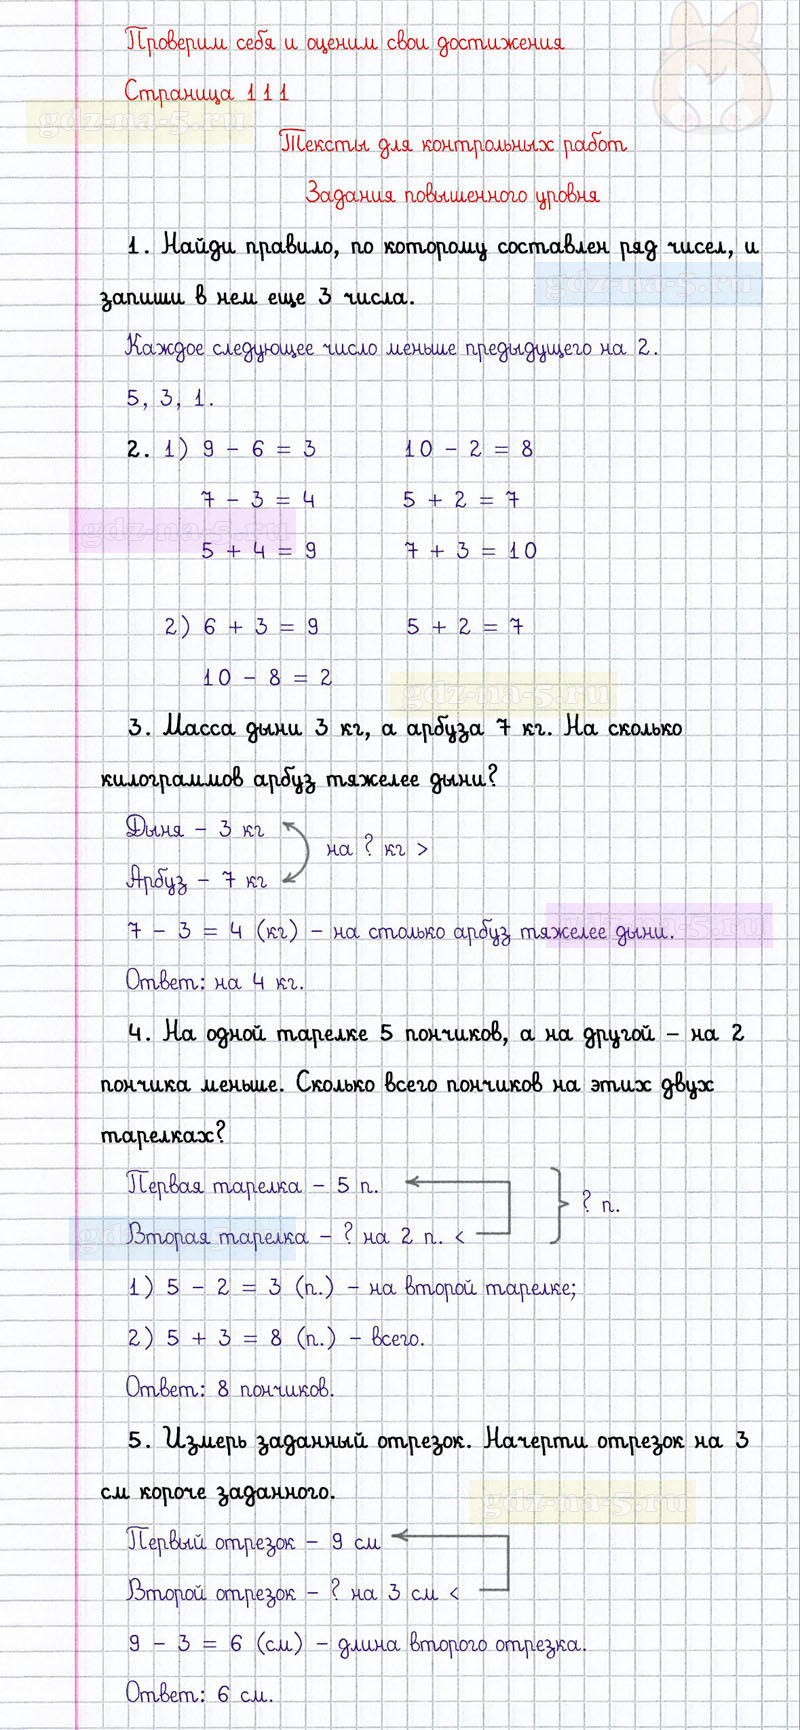 Проверим себя и оценим свои достижения
Страница 111
gdz-na-5.ru
Тексты для контрольных работ
Задания повышенного уровня
1. Найди правило, по которому составлен ряд чисел, и
gdz-na-5.ru
запиши в нем еще 3 числа.
Каждое следующее число меньше предыдущего на 2.
5, 3, 1.
2. 1) 9 - 6 = 3 10 - 2 = 8
7 - 3 = 4 5 + 2 = 7
gdz-na-5.ru
5 + 4 = 9 7 + 3 = 10
2) 6 + 3 = 9 5 + 2 = 7
10 - 8 = 2
gdz-na-5.ru
3. Масса дыни 3 кг, а арбуза 7 кг. На сколько
килограммов арбуз тяжелее дыни?
Дыня - 3 кг
на ? кг >
Арбуз - 7 кг
7 - 3 = 4 (кг) - на столько арбуз тяжелее дыни.
gdz-na-5.ru
Ответ: на 4 кг.
4. На одной тарелке 5 пончиков, а на другой - на 2
пончика меньше. Сколько всего пончиков на этих двух
тарелках?
Первая тарелка - 5 п.
? п.
Вторая тарелка - ? на 2 п. <
gdz-na-5.ru
1) 5 - 2 = 3 (п.) - на второй тарелке;
2) 5 + 3 = 8 (п.) - всего.
Ответ: 8 пончиков.
5. Измерь заданный отрезок. Начерти отрезок на 3
см короче заданного.
gdz-na-5.ru
Первый отрезок - 9 см
Второй отрезок - ? на 3 см <
9 - 3 = 6 (см) - длина второго отрезка.
Ответ: 6 см.